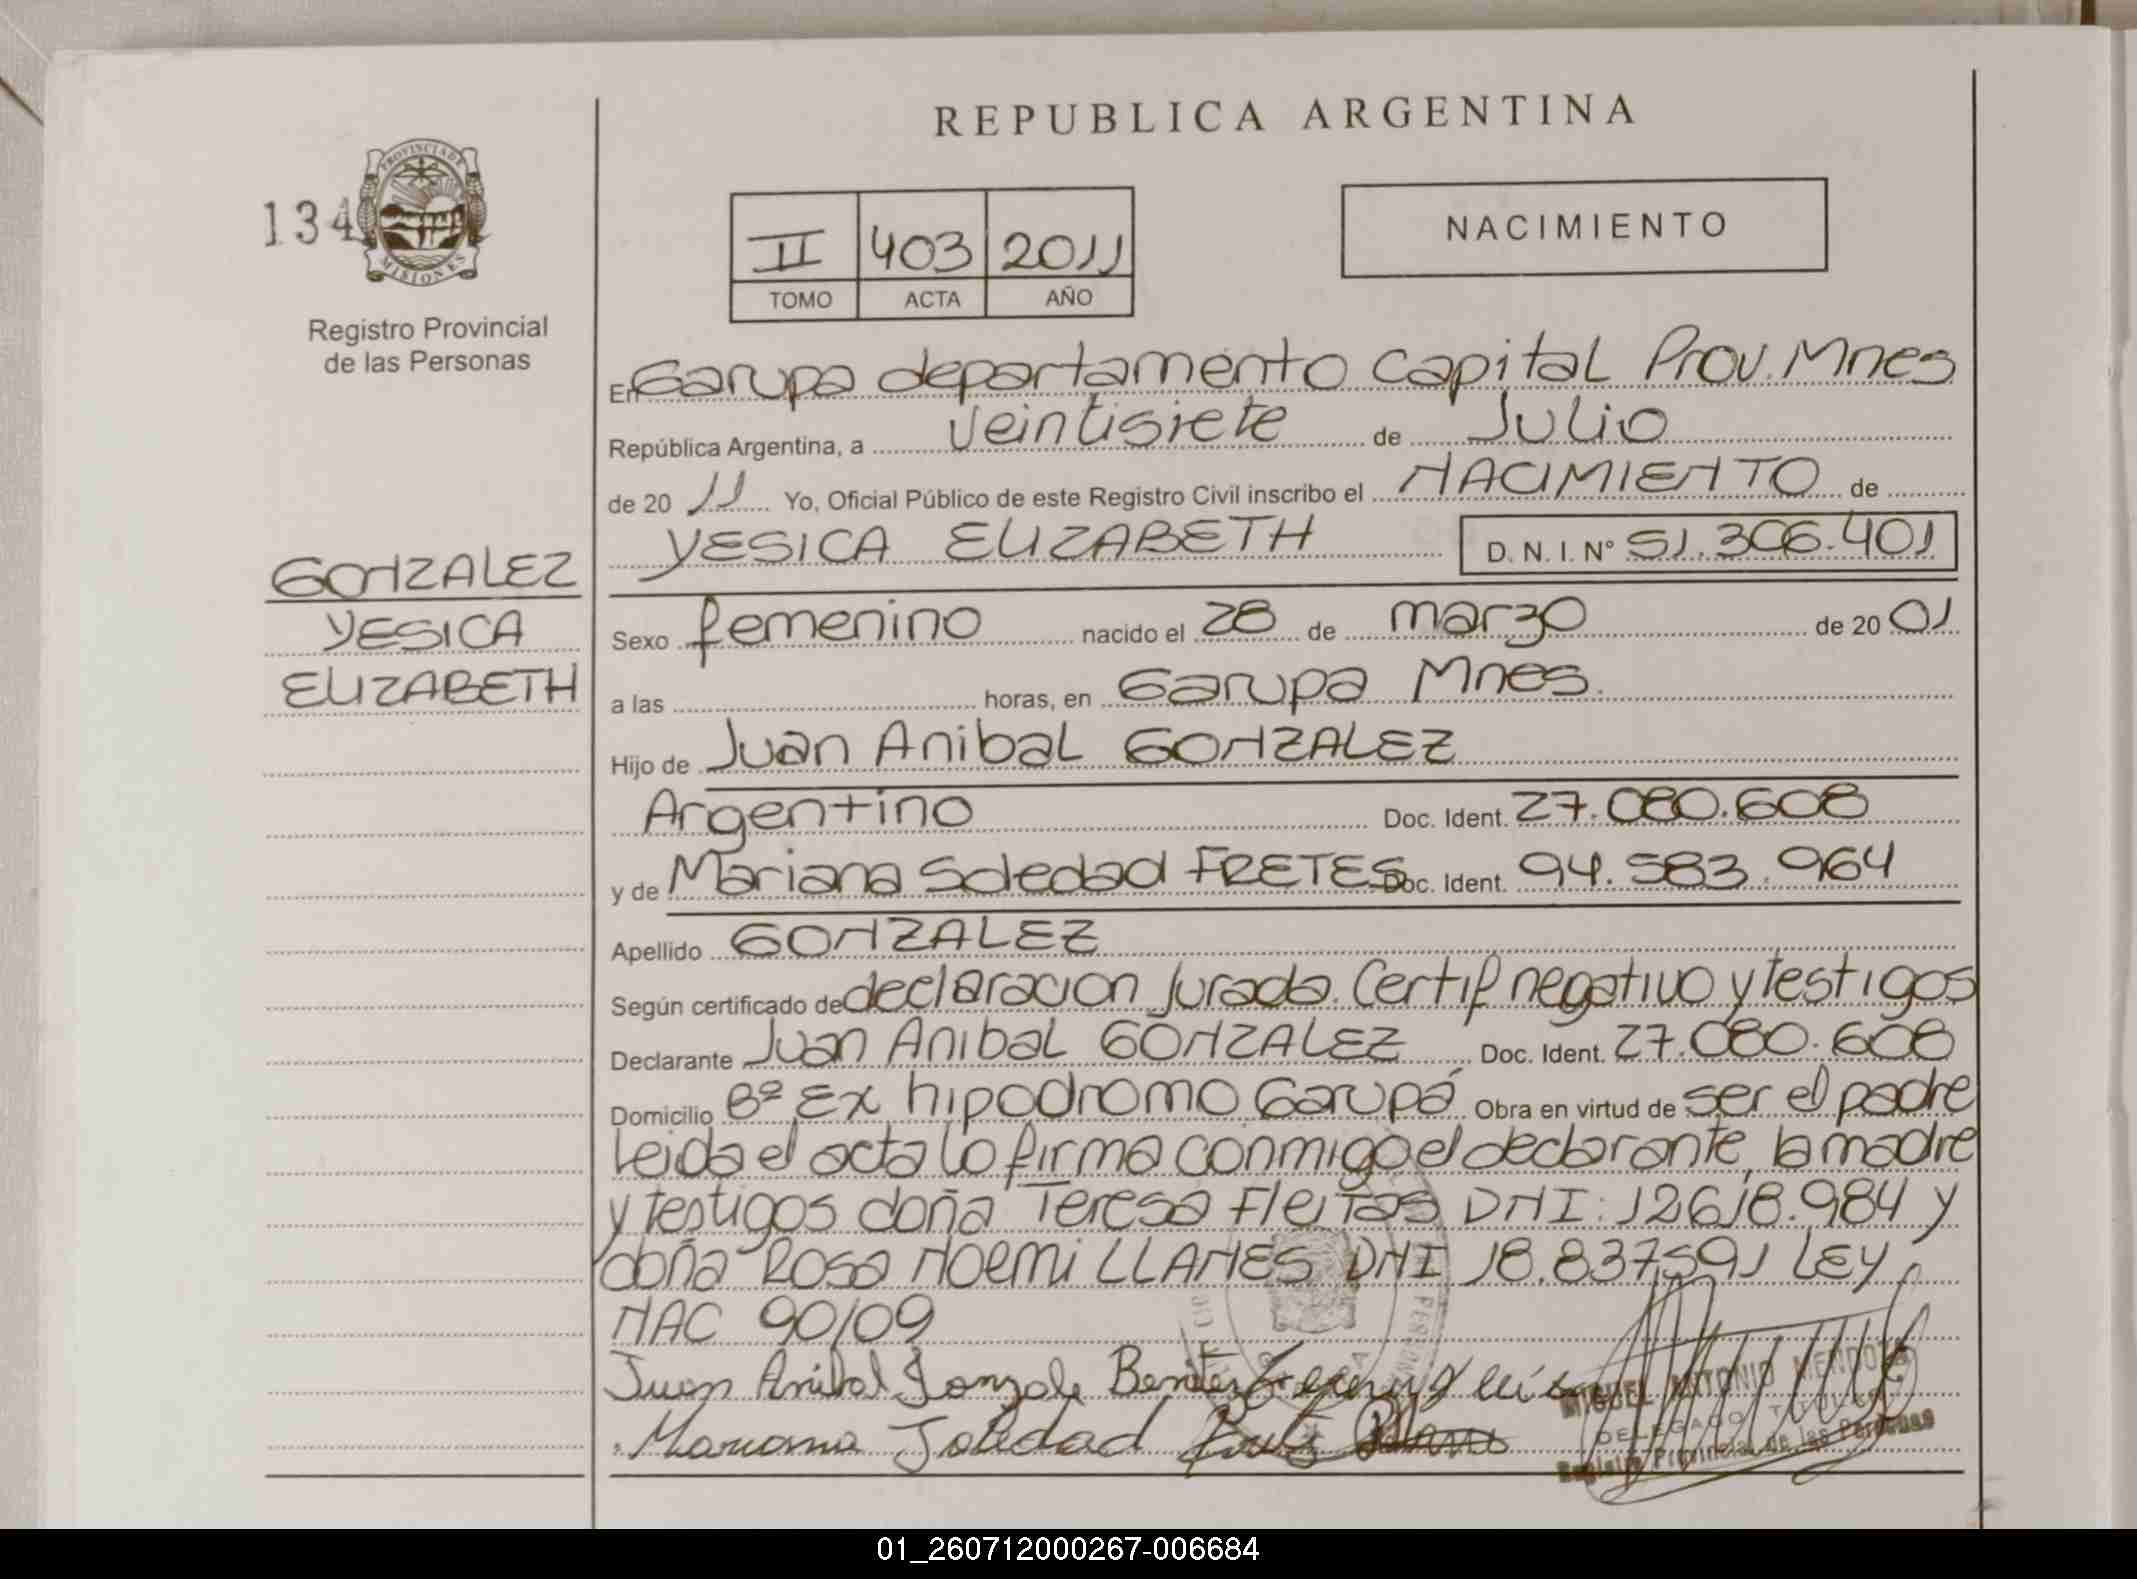 REPUBLICA ARGENTINA
134
PROVINCIA DE
MISIONES
Registro Provincial
de las Personas
II 403 2011
TOMO ACTA AÑO
NACIMIENTO
En Garupa departamento Capital Prov. Mnes
República Argentina, a veintisiete de Julio
de 20 11 Yo, Oficial Público de este Registro Civil inscribo el NACIMIENTO de
YESICA ELIZABETH D. N. I. N° 51.306.401
GONZALEZ
YESICA
ELIZABETH
Sexo femenino nacido el 28 de marzo de 20 01
a las horas, en Garupa Mnes.
Hijo de Juan Anibal GONZALEZ
Argentino Doc. Ident. 27.080.608
y de Mariana Soledad FRETES Doc. Ident. 94.583.964
Apellido GONZALEZ
Según certificado de declaracion Jurada. Certif negativo y testigos
Declarante Juan Anibal GONZALEZ Doc. Ident. 27.080.608
Domicilio Bº Ex hipodromo Garupá Obra en virtud de ser el padre
Leida el acta lo firma conmigo el declarante, la madre
y testigos doña Teresa Fleitas DNI: 12618.984 y
doña Rosa Noemi LLANES DNI 18.837.591 LEY
NAC 90/09
Juan Anibal Gonzale
Mariana Soledad
MIGUEL ANTONIO MENDOZA
DELEGADO TITULAR
Registro Provincial de las Personas
01_260712000267-006684